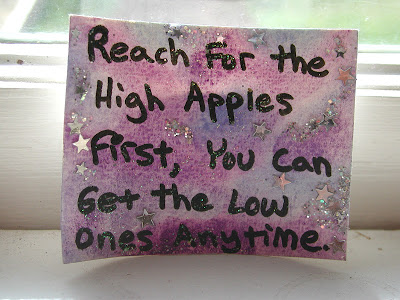 Reach For the
High Apples
First, You Can
Get the Low
Ones Anytime.